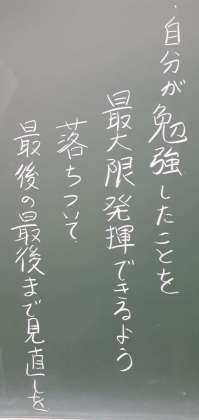 ・自分が勉強したことを
最大限発揮できるよう
落ちついて
最後の最後まで見直しを